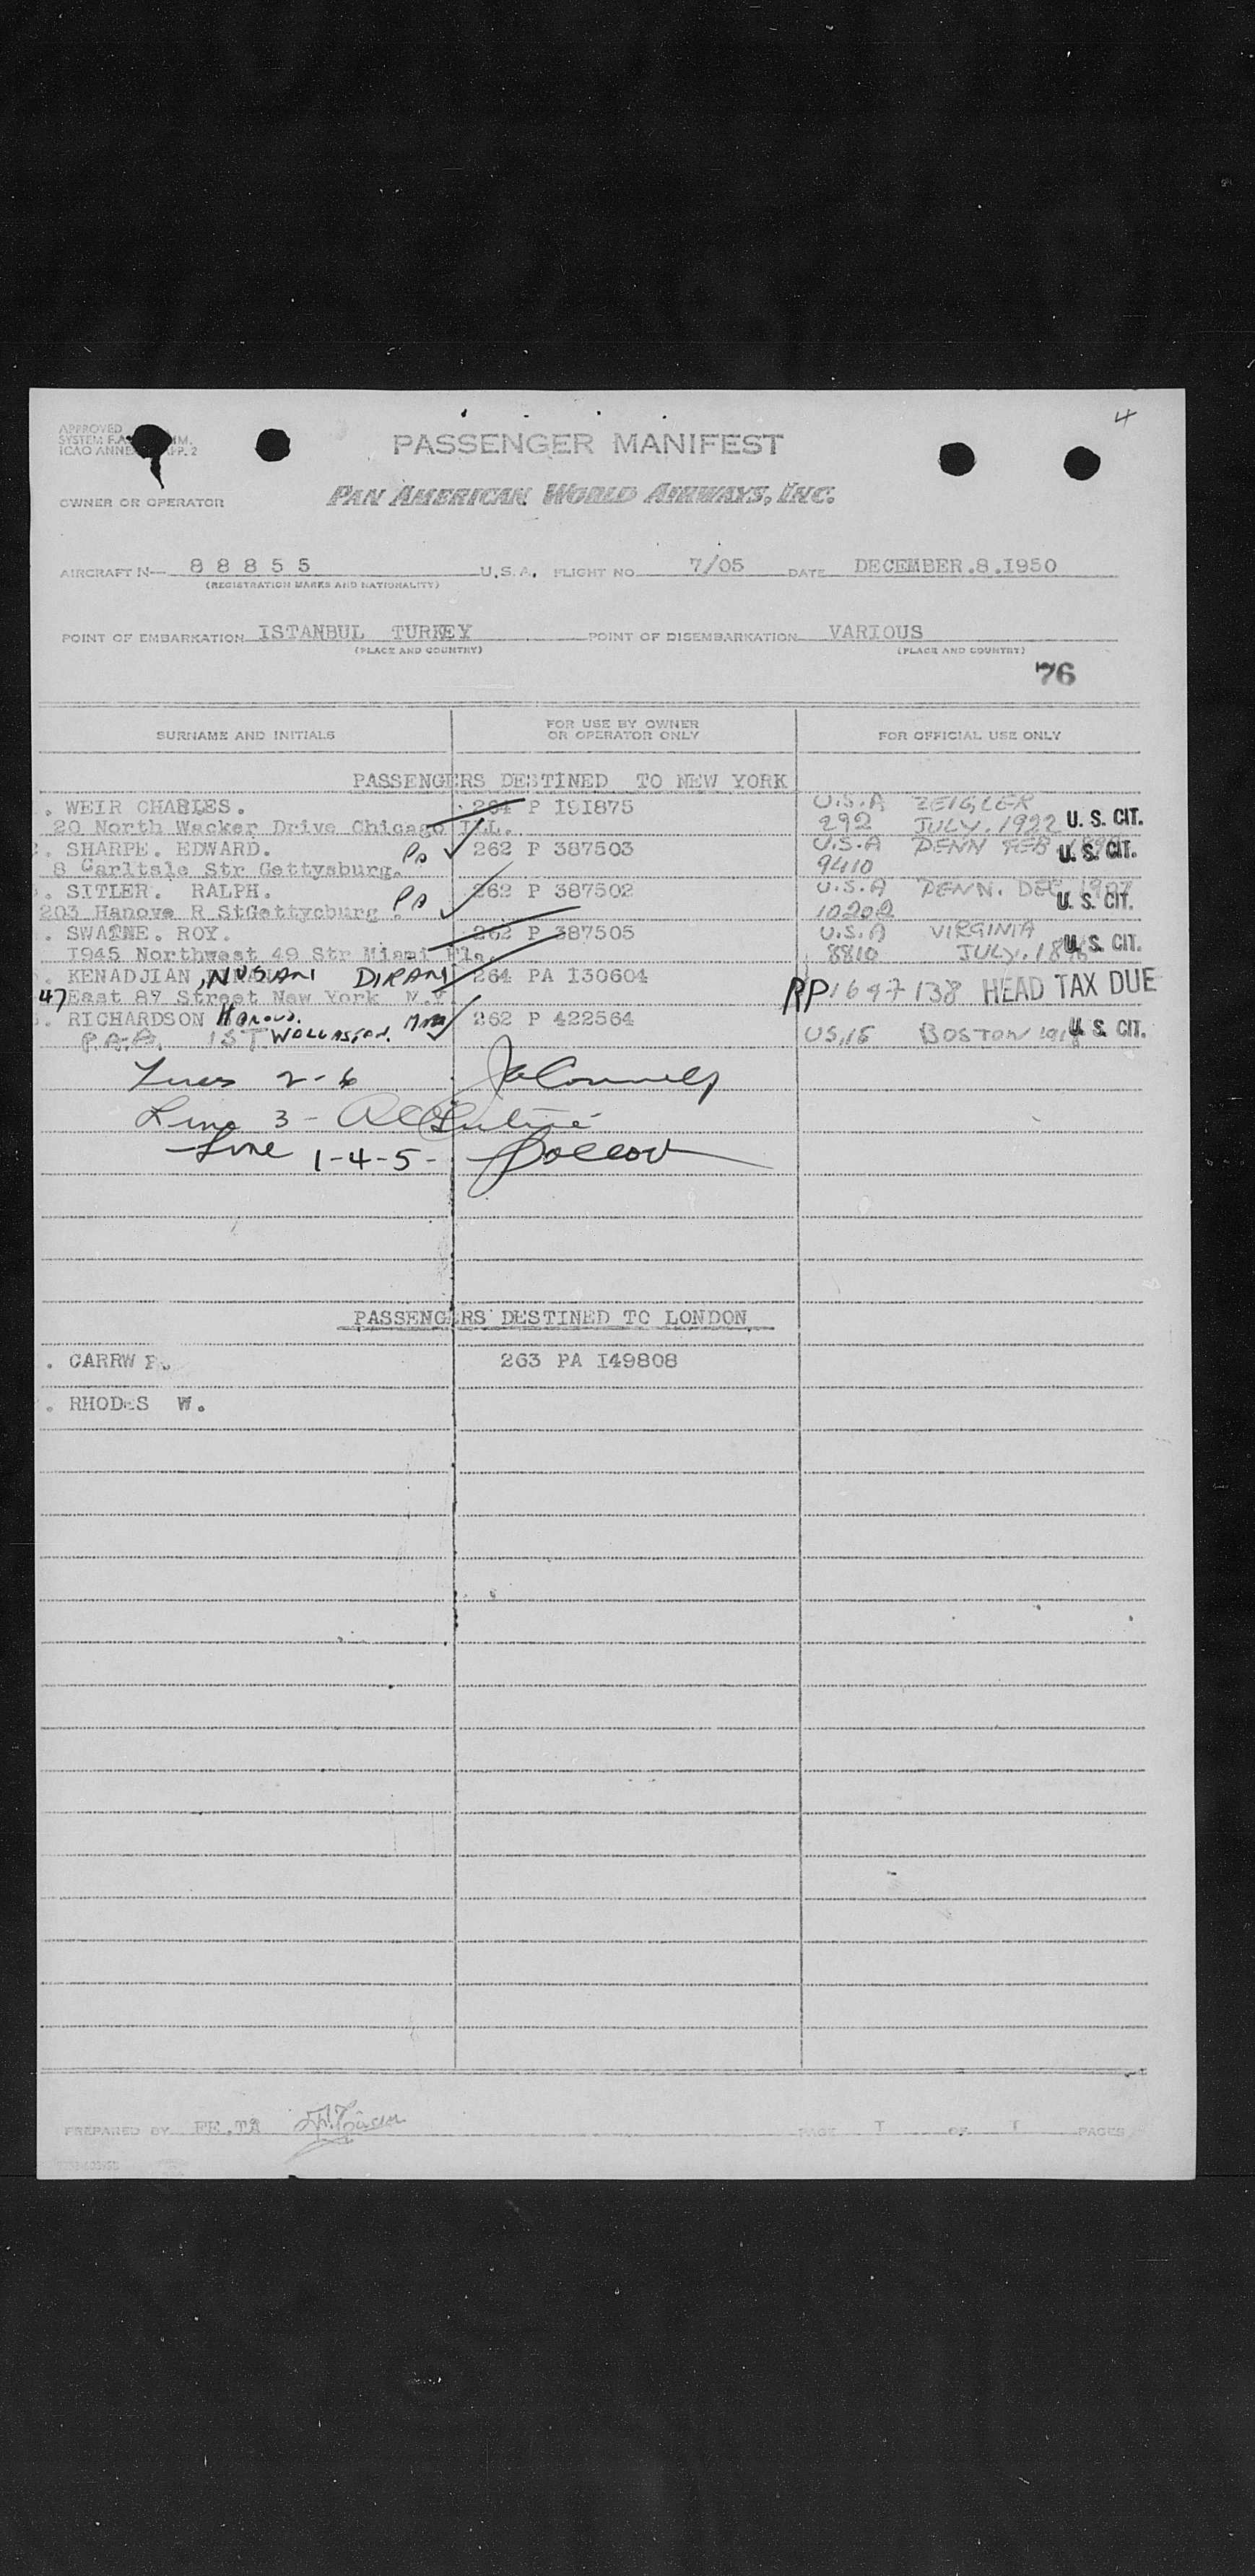 4
APPROVED
SYSTEM
ICAO ANNE P. 2
PASSENGER MANIFEST
OWNER OR OPERATOR PAN AMERICAN WORLD AIRWAYS, INC.
AIRCRAFT N— 8 8 8 5 5 U.S.A. FLIGHT NO. 7/05 DATE DECEMBER.8.I950
(REGISTRATION MARKS AND NATIONALITY)
POINT OF EMBARKATION ISTANBUL TURKEY POINT OF DISEMBARKATION VARIOUS
(PLACE AND COUNTRY) (PLACE AND COUNTRY)
76
SURNAME AND INITIALS FOR USE BY OWNER OR OPERATOR ONLY FOR OFFICIAL USE ONLY
PASSENGERS DESTINED TO NEW YORK
. WEIR CHARLES. 264 P I9I875 U.S.A ZEIGLER
20 North Wacker Drive Chicago ILL. 292 JULY. 1922 U. S. CIT.
. SHARPE. EDWARD. Pa 262 P 387503 U.S.A PENN FEB
8 Carltsle Str Gettysburg. 9410 U. S. CIT.
. SITLER. RALPH. Pa 262 P 387502 U.S.A PENN. DEC 1907
203 Hanove R StGettycburg . 10202 U. S. CIT.
. SWAINE. ROY. 262 P 387505 U.S.A VIRGINIA
I945 Northwest 49 Str Miami Fla. 8810 JULY. U. S. CIT.
. KENADJIAN, DIRAN 264 PA I30604
47 East 87 Street New York N.Y. RP 1647138 HEAD TAX DUE
. RICHARDSON Harold. 262 P 422564
P.A.A. 1ST WOLLASTON. Mass US,15 BOSTON U. S. CIT.
Lines 2-6
Line 3 -
Line 1-4-5-
PASSENGERS DESTINED TO LONDON
. CARRW P. 263 PA I49808
. RHODES W.
PREPARED BY FE.TA PAGE I OF I PAGES